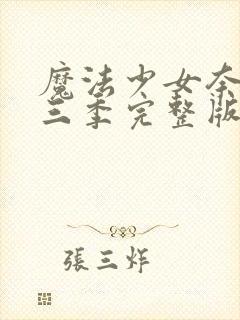 魔法少女奈
三季完整版
張三炸